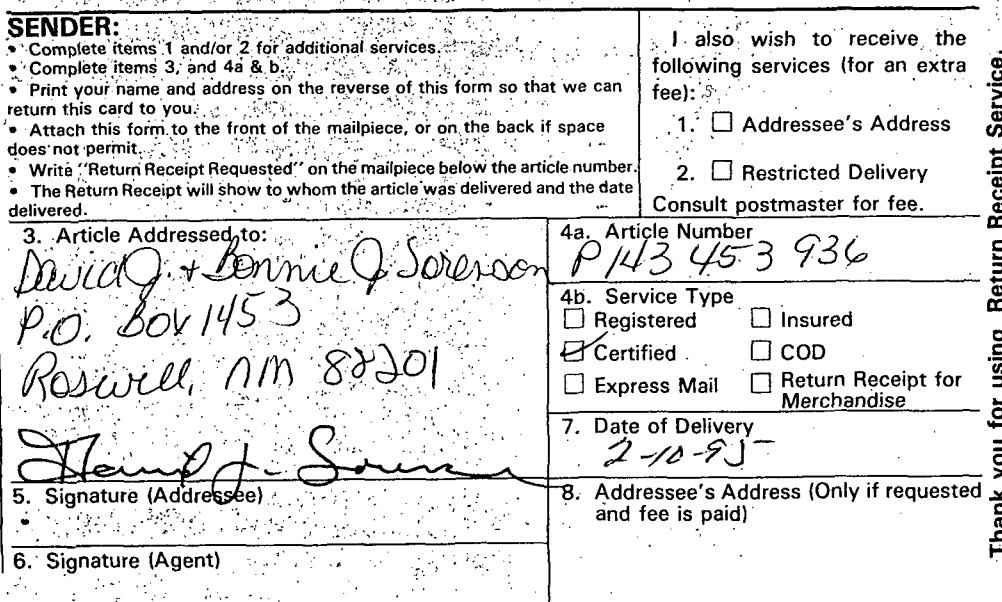 SENDER:
• Complete items 1 and/or 2 for additional services.
• Complete items 3, and 4a & b.
• Print your name and address on the reverse of this form so that we can
return this card to you.
• Attach this form to the front of the mailpiece, or on the back if space
does not permit.
• Write "Return Receipt Requested" on the mailpiece below the article number.
• The Return Receipt will show to whom the article was delivered and the date
delivered.
I also wish to receive the
following services (for an extra
fee):
1. ☐ Addressee's Address
2. ☐ Restricted Delivery
Consult postmaster for fee.
3. Article Addressed to:
David J. + Bonnie J Sorenson
P.O. Box 1453
Roswell, NM 88201
4a. Article Number
P 143 453 936
4b. Service Type
☐ Registered ☐ Insured
☑ Certified ☐ COD
☐ Express Mail ☐ Return Receipt for
Merchandise
7. Date of Delivery
2-10-95
David J. Sorenson
5. Signature (Addressee)
8. Addressee's Address (Only if requested
and fee is paid)
6. Signature (Agent)
Thank you for using Return Receipt Service.